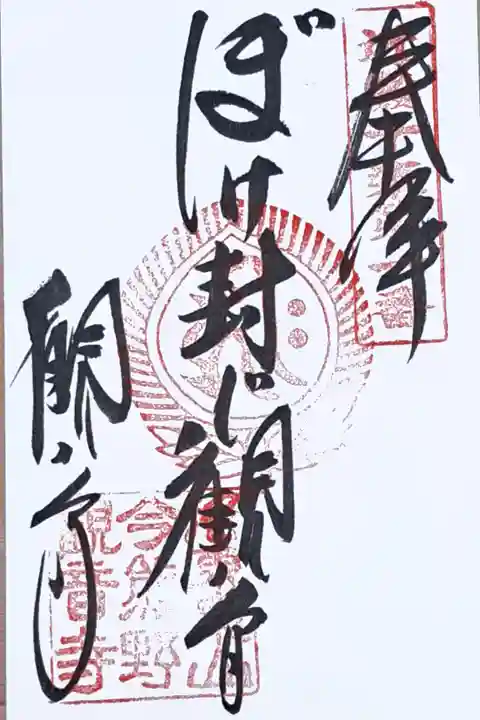 奉拝
ぼけ封じ観音
観音寺
今熊野
観音寺